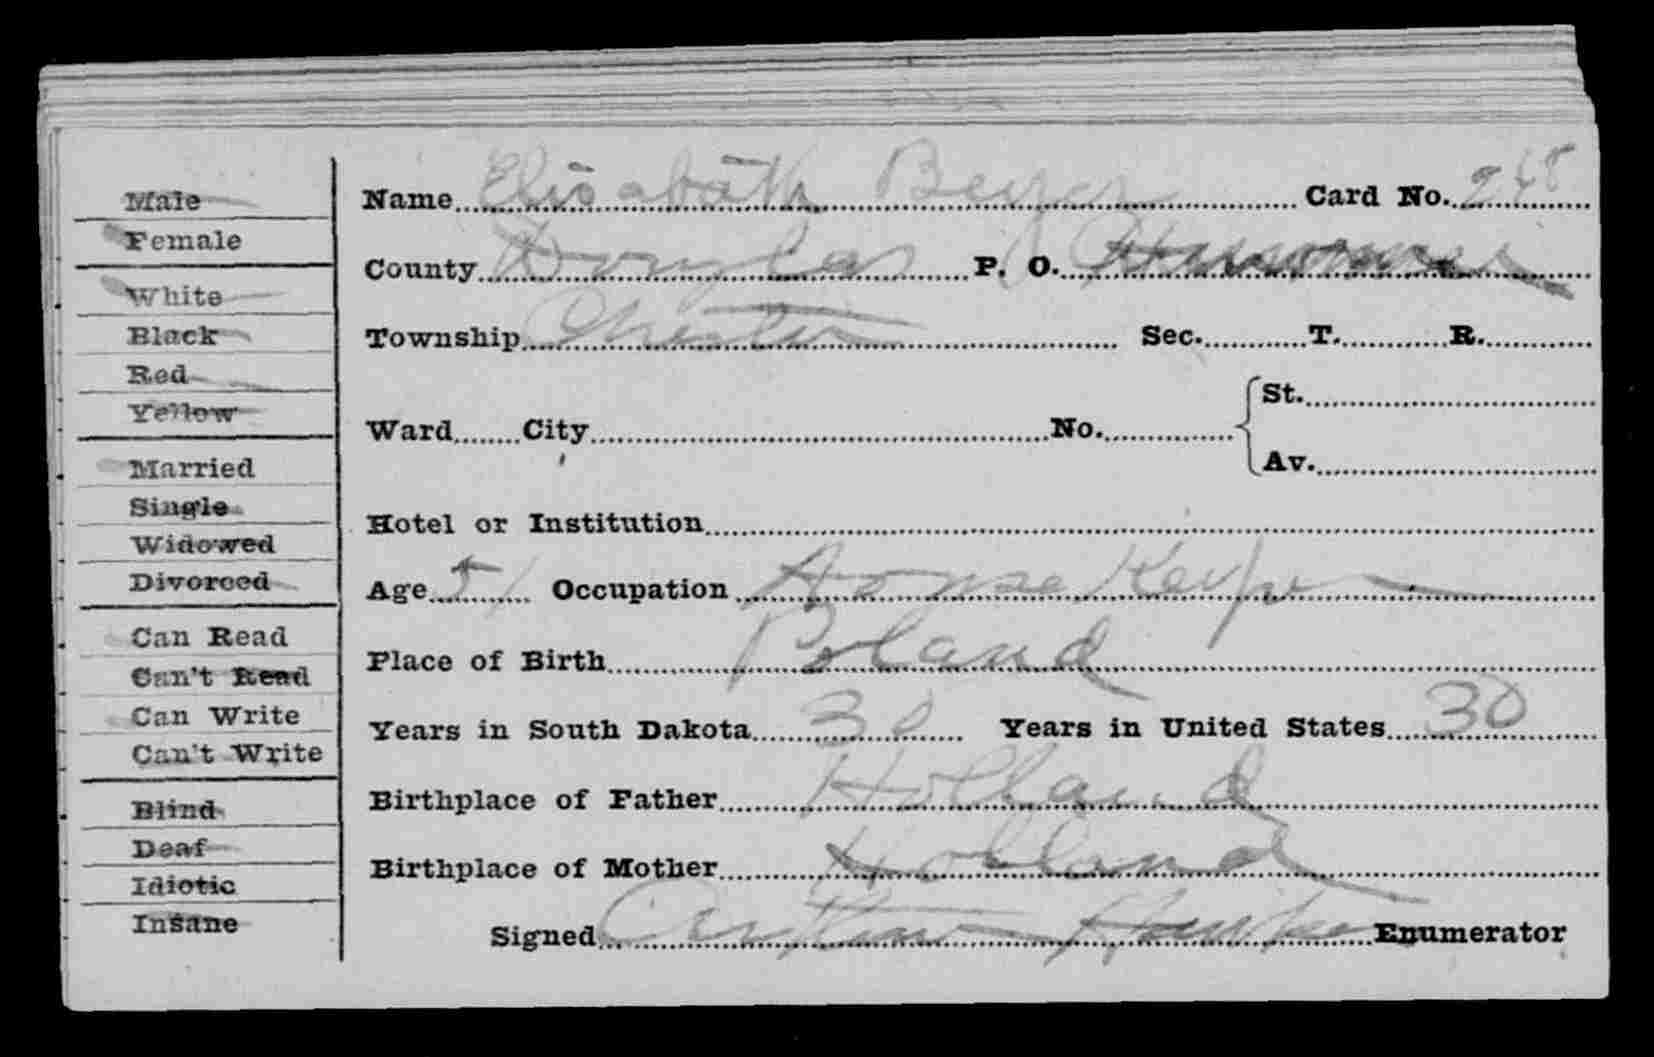 Male
Female
White
Black
Red
Yellow
Married
Single
Widowed
Divorced
Can Read
Can't Read
Can Write
Can't Write
Blind
Deaf
Idiotic
Insane
Name Elisabath Beyer Card No. 268
County Douglas P. O.
Township Chester Sec. T. R.
Ward City No. St.
Av.
Hotel or Institution
Age 51 Occupation House Keeper
Place of Birth Poland
Years in South Dakota 30 Years in United States 30
Birthplace of Father Holland
Birthplace of Mother Holland
Signed Enumerator